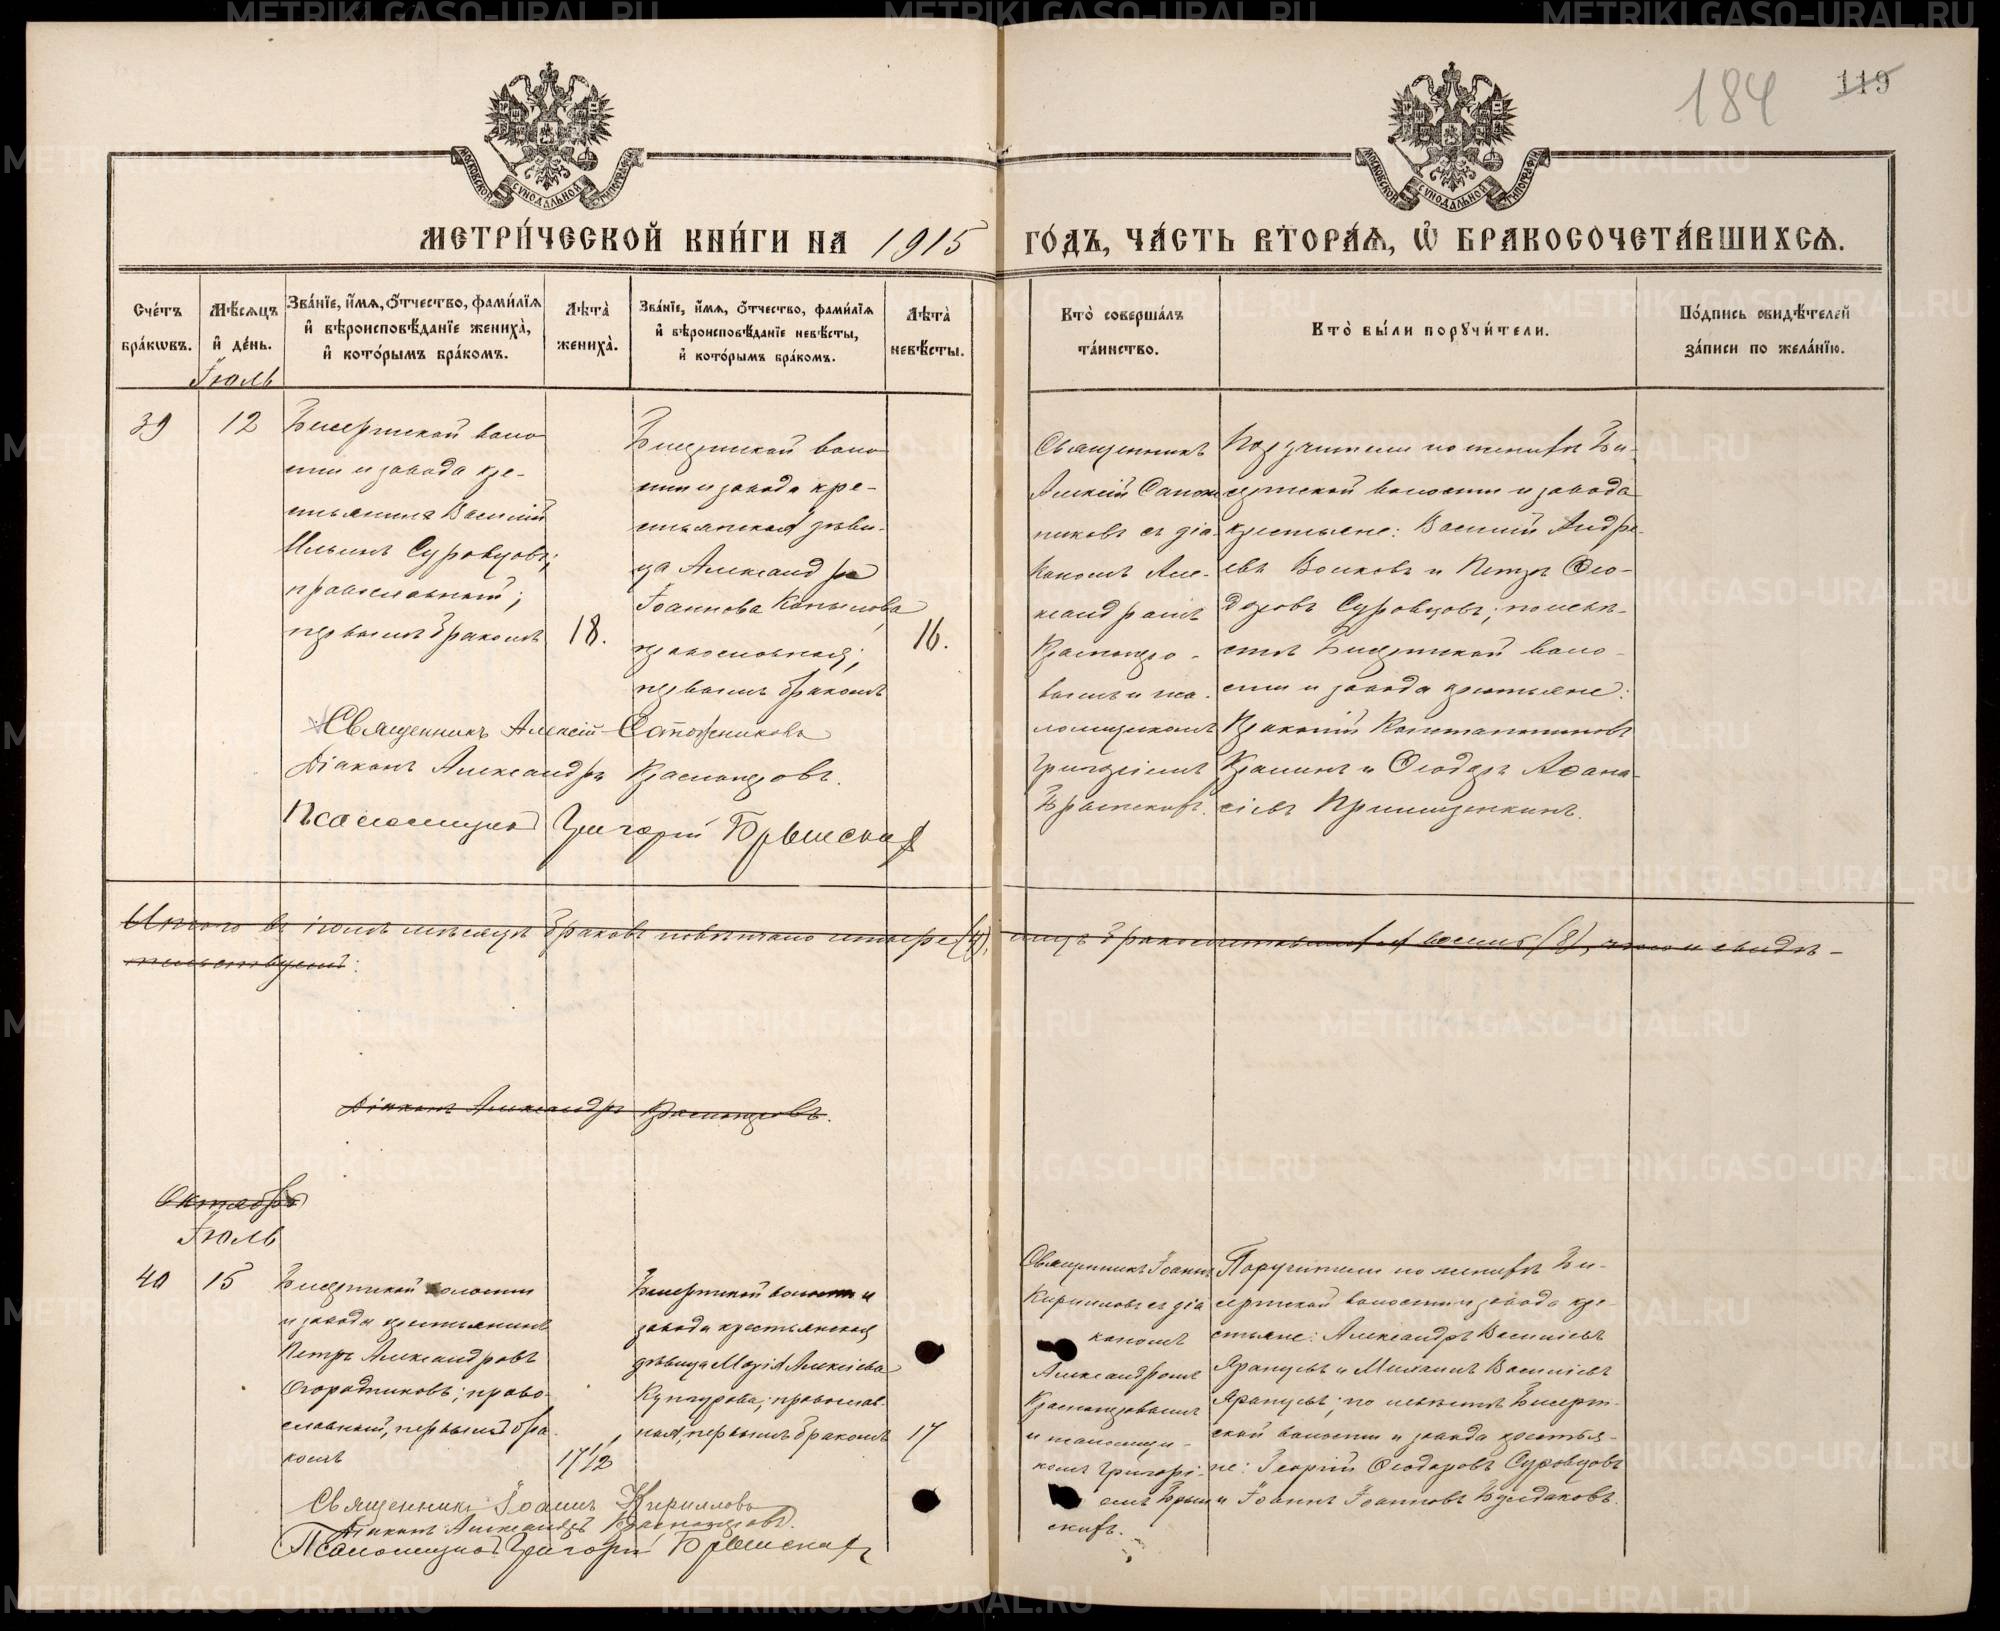 184
119
МОСКОВСКОЙ СѴНОДАЛЬНОЙ ТИПОГРАФІИ
МОСКОВСКОЙ СѴНОДАЛЬНОЙ ТИПОГРАФІИ
МЕТРИ́ЧЕСКОЙ КНИ́ГИ НА 1915 ГО́ДЪ, ЧА́СТЬ ВТОРА́Я, Ѡ БРАКОСОЧЕТА́ВШИХСЯ.
Сче́тъ
бра́кωвъ.
Мѣ́сяцъ
и҆ де́нь.
Іюль
Зва́нїе, и҆́мя, ѻ҆́тчество, фами́лїя
и҆ вѣроисповѣ́данїе жениха̀,
и҆ кото́рымъ бра́комъ.
Лѣта̀
жениха̀.
Зва́нїе, и҆́мя, ѻ҆́тчество, фами́лїя
и҆ вѣроисповѣ́данїе невѣ́сты,
и҆ кото́рымъ бра́комъ.
Лѣта̀
невѣ́сты.
Кто̀ соверша́лъ
та́инство.
Кто̀ бы́ли порꙋчи́тели.
По́дпись свидѣ́телей
за́писи по жела́нїю.
39
12
Бисертской воло
сти и завода кре-
стьянинъ Василій
Ильинъ Суровцовъ;
православный;
первымъ бракомъ
18.
Бисертской воло
сти и завода кре-
стьянская дѣви-
ца Александра
Іоаннова Копылова
православная;
первымъ бракомъ
16.
Священникъ
Алексій Сапож
никовъ съ діа-
кономъ Але-
ксандромъ
Красноперо-
вымъ и пса-
ломщикомъ
Григоріемъ
Брыжскихъ.
Поручители по женихѣ Би-
сертской волости и завода
крестьяне: Василій Андре-
евъ Волковъ и Петръ Ѳео-
доровъ Суровцовъ; по невѣ-
стѣ Бисертской воло-
сти и завода крестьяне:
Константиновъ
и Ѳеодоръ Аѳана-
сіевъ
Священникъ Алексій Сапожниковъ
Діаконъ Александръ Красноперовъ.
Псаломщикъ Григорій
Итого въ іюлѣ мѣсяцѣ браковъ повѣнчано четыре (4), лицъ бракосочетавшихся восемь (8), въ чемъ и свидѣ-
тельствуемъ:
Діаконъ Александръ Красноперовъ.
Октябрь
Іюль
40
15
Бисертской волости
и завода крестьянинъ
Петръ Александровъ
Огородниковъ; право-
славный, первымъ бра-
комъ
17 1/2
Бисертской волости и
завода крестьянская
дѣвица Марія Алексіева
Кунгурова; православ-
ная, первымъ бракомъ
17
Священникъ Іоаннъ
Кирилловъ съ діа
кономъ
Александромъ
Красноперовымъ
и псаломщи-
комъ Григорі-
емъ
скихъ.
Поручители по женихѣ Би-
сертской волости и завода кре-
стьяне: Александръ Василіевъ
и Михаилъ Василіевъ
по невѣстѣ Бисерт-
ской волости и завода крестья-
не: Георгій Ѳеодоровъ Суровцовъ
и Іоаннъ Іоанновъ Булдаковъ.
Священникъ Іоаннъ Кирилловъ
Діаконъ Александръ Красноперовъ.
Псаломщикъ Григорій
METRIKI.GASO-URAL.RU